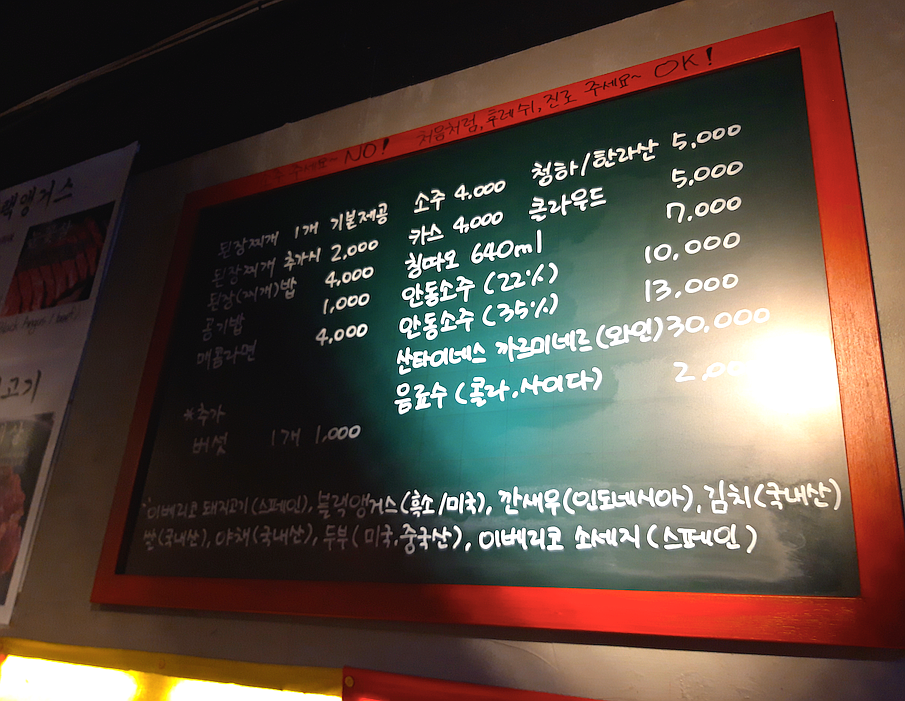 소주 주세요~ NO! 처음처럼, 후레쉬, 진로 주세요~ OK!
된장찌개 1개 기본제공
된장찌개 추가시 2,000
된장(찌개)밥 4,000
공기밥 1,000
매콤라면 4,000
*추가
버섯 1개 1,000
소주 4,000 청하/한라산 5,000
카스 4,000 클라우드 5,000
칭따오 640ml 7,000
안동소주 (22%) 10,000
안동소주 (35%) 13,000
싼타이네스 까르미네르 (와인) 30,000
음료수 (콜라, 사이다)
*이베리코 돼지고기 (스페인), 블랙앵거스 (흑소/미국), 깐새우 (인도네시아), 김치 (국내산)
쌀 (국내산), 야채 (국내산), 두부 (미국, 중국산), 이베리코 소세지 (스페인)
랙앵거스
고기